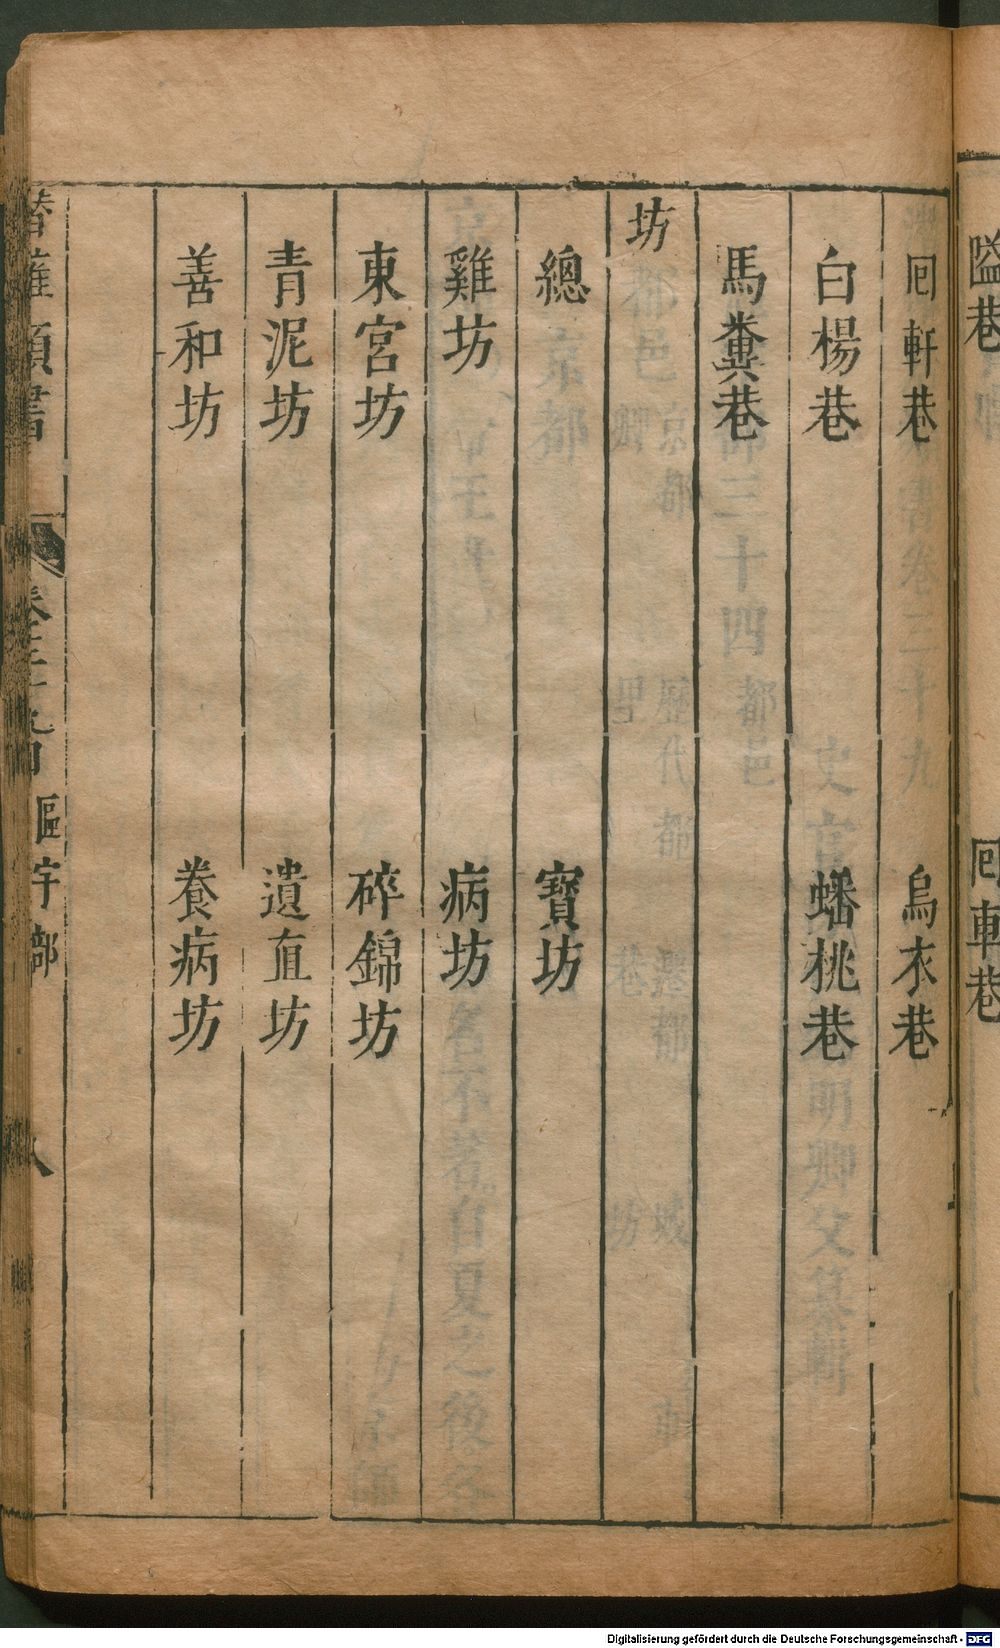 隘巷　囘車巷
囘軒巷　烏衣巷
白楊巷　蟠桃巷
馬糞巷
坊
總　寶坊
雞坊　病坊
東宮坊　碎錦坊
青泥坊　遺直坊
善和坊　養病坊
潛確類書　卷三十九目　區宇部　八
Digitalisierung gefördert durch die Deutsche Forschungsgemeinschaft - DFG